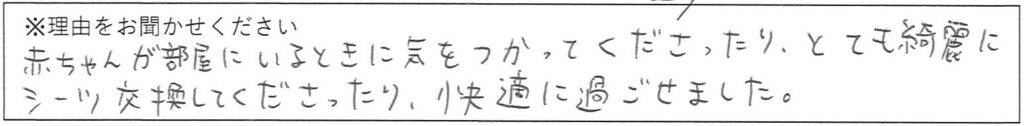 ※理由をお聞かせください
赤ちゃんが部屋にいるときに気をつかってくださったり、とても綺麗に
シーツ交換してくださったり、快適に過ごせました。